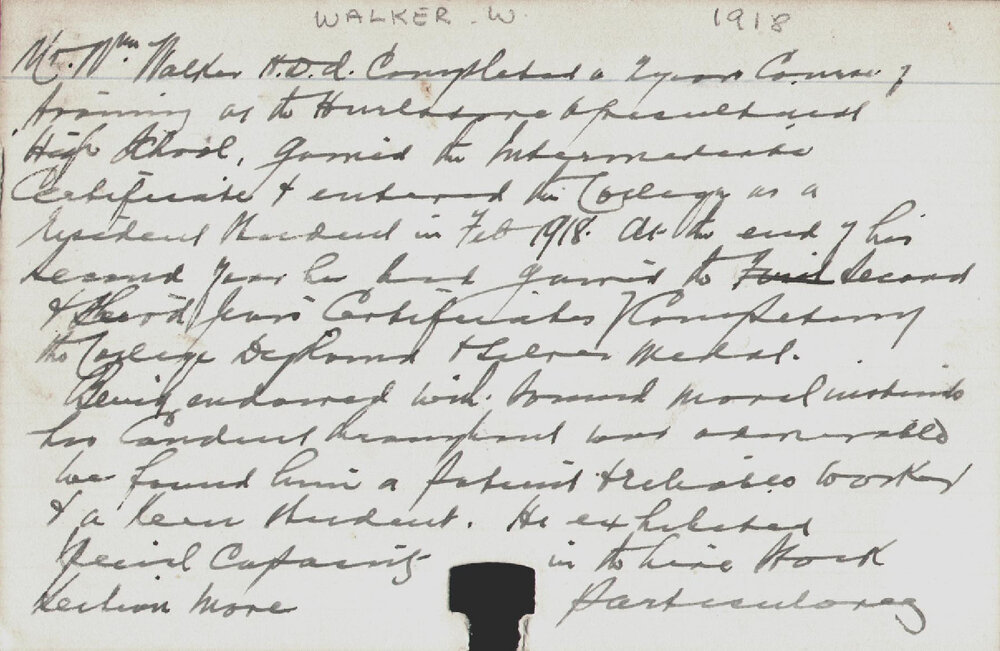 WALKER. W. 1918
Mr. Wm Walker H.D.A. Completed a 2 years Course of
training at the Hurlstone Agricultural
High School, gained the Intermediate
Certificate & entered the College as a
resident Student in Feb 1918. At the end of his
second year he had gained the First Second
& Third years Certificates of Competency
the College Diploma & Silver Medal.
Being endowed with sound moral instincts
his conduct throughout was admirable
We found him a patient & reliable worker
& a keen student. He exhibited
special Capacity in the live Stock
section more particularly